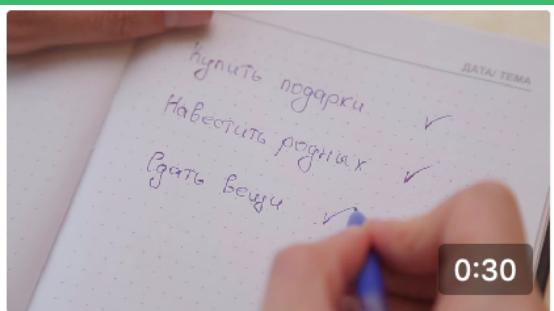 ДАТА/ ТЕМА
Купить подарки ✓
Навестить родных ✓
Сдать вещи ✓
0:30